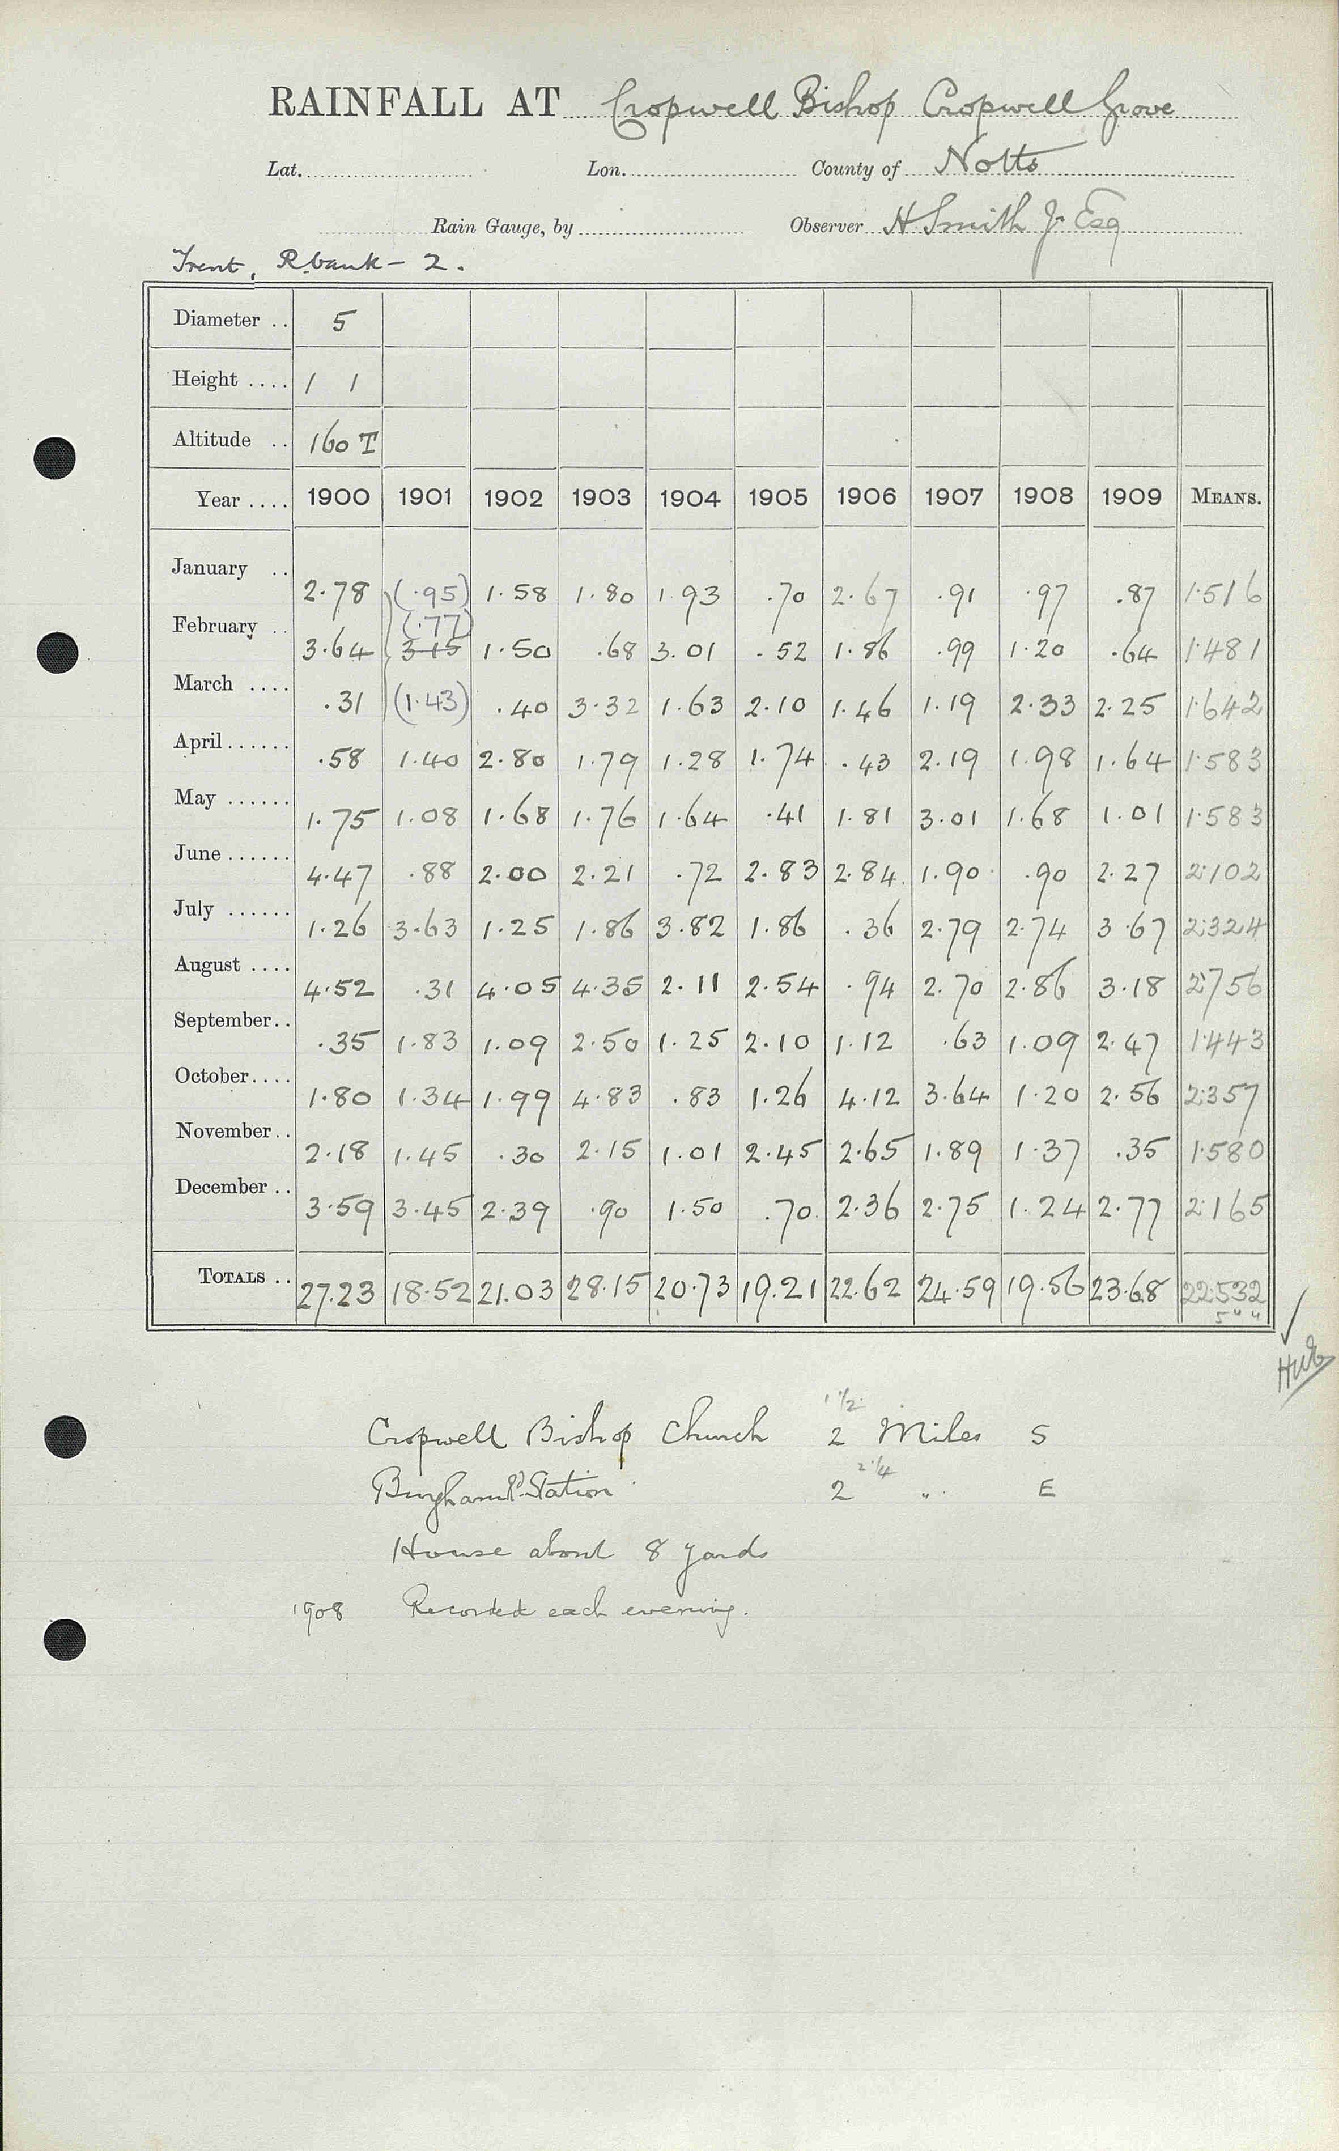 RAINFALL AT Cropwell Bishop Cropwell Grove
Lat. Lon. County of Notts
Rain Gauge, by Observer H Smith Jr Esq
Trent, R. bank - 2.
Diameter .. 5
Height .... 1 1
Altitude .. 160 T
Year .... 1900 1901 1902 1903 1904 1905 1906 1907 1908 1909 MEANS.
January .. 2.78 (.95) 1.58 1.80 1.93 .70 2.67 .91 .97 .87 1.516
(.77)
February .. 3.64 3.15 1.50 .68 3.01 .52 1.86 .99 1.20 .64 1.481
March .... .31 (1.43) .40 3.32 1.63 2.10 1.46 1.19 2.33 2.25 1.642
April ...... .58 1.40 2.80 1.79 1.28 1.74 .43 2.19 1.98 1.64 1.583
May ...... 1.75 1.08 1.68 1.76 1.64 .41 1.81 3.01 1.68 1.01 1.583
June ...... 4.47 .88 2.00 2.21 .72 2.83 2.84 1.90 .90 2.27 2.102
July ...... 1.26 3.63 1.25 1.86 3.82 1.86 .36 2.79 2.74 3.67 2.324
August .... 4.52 .31 4.05 4.35 2.11 2.54 .94 2.70 2.86 3.18 2.756
September .. .35 1.83 1.09 2.50 1.25 2.10 1.12 .63 1.09 2.47 1.443
October .... 1.80 1.34 1.99 4.83 .83 1.26 4.12 3.64 1.20 2.56 2.357
November .. 2.18 1.45 .30 2.15 1.01 2.45 2.65 1.89 1.37 .35 1.580
December .. 3.59 3.45 2.39 .90 1.50 .70 2.36 2.75 1.24 2.77 2.165
TOTALS .. 27.23 18.52 21.03 28.15 20.73 19.21 22.62 24.59 19.56 23.68 22.532
5 " "
1 1/2
Cropwell Bishop Church 2 Miles S
2 1/4
Bingham Rd. Station 2 " E
House about 8 yards
1908 Recorded each evening.